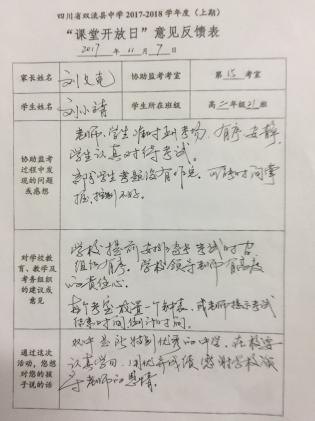 四川省双流县中学2017-2018学年度(上期)
“课堂开放日”意见反馈表
2017年11月7日
家长姓名 刘文 协助监考考室 第15考室
学生姓名 刘小靖 学生所在班级 高二年级21班
协助监考过程中发现的问题或感想
老师、学生准时到考场,有序安静,
学生认真对待考试。
部分学生考题没有作完,可能时间掌
握控制不好。
对学校教育、教学及考务组织的建议或意见
学校提前安排
组织有序。学校领导老师有高度
的责任心。
每个考室放置一个钟表,或老师提示考试
结束时间,倒计时间。
通过这次活动,您想对您的孩子说的话
双中是所特别优秀的中学,在校要
认真学习,用优异成绩感谢学校领
导老师的恩情。